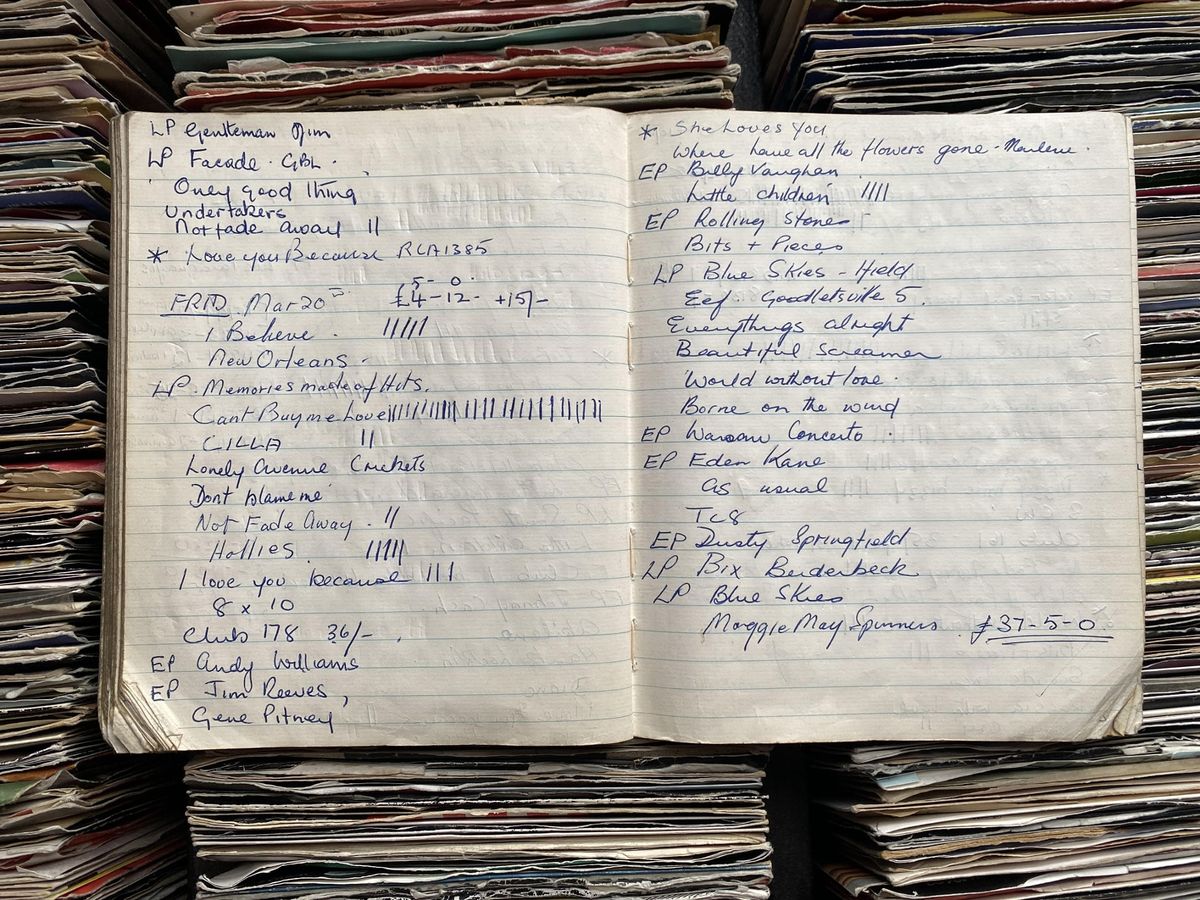 LP Gentleman Jim
LP Facade. GBL.
Only good thing
Undertakers
Not fade away 11
* Love you Because RCA1385
5 - 0
FRID. Mar 20 £4-12- +15/-
I Believe. 11111
New Orleans.
LP. Memories made of Hits.
Cant Buy me Love
CILLA 11
Lonely Avenue Crickets
Dont blame me
Not Fade Away. 11
Hollies 11111
I love you because 111
8 x 10
Club 178 36/-
EP Andy Williams
EP Jim Reeves,
Gene Pitney
* She Loves You
Where have all the flowers gone - Marlene.
EP Billy Vaughan
Little children 1111
EP Rolling Stones
Bits + Pieces
LP Blue Skies - Hield
Eef. Goodletsville 5.
Everythings alright
Beautiful Screamer
World without love.
Borne on the wind
EP Warsaw Concerto.
EP Eden Kane
as usual
Tc8
EP Dusty Springfield
LP Bix Beiderbeck
LP Blue Skies
Maggie May Spinners £37-5-0